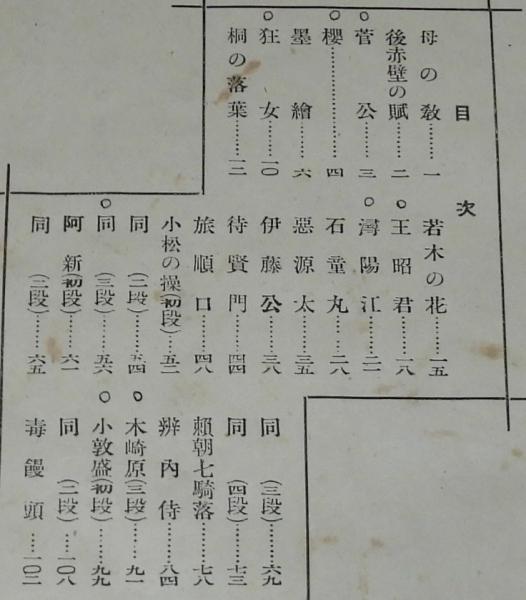 目次
母の教………一
後赤壁の賦………二
○菅公………三
○櫻………四
墨繪………六
○狂女………一〇
桐の落葉………一二
若木の花………一五
○王昭君………一八
○潯陽江………二一
石童丸………二八
惡源太………三五
伊藤公………三八
待賢門………四四
旅順口………四八
小松の操(初段)……五二
同(二段)……五四
○同(三段)……五六
阿新(初段)……六一
同(二段)……六五
同(三段)……六九
同(四段)……七三
賴朝七騎落……七八
辨內侍……八四
○木崎原(三段)……九一
○小敦盛(初段)……九九
同(二段)……一〇八
毒饅頭……一〇二